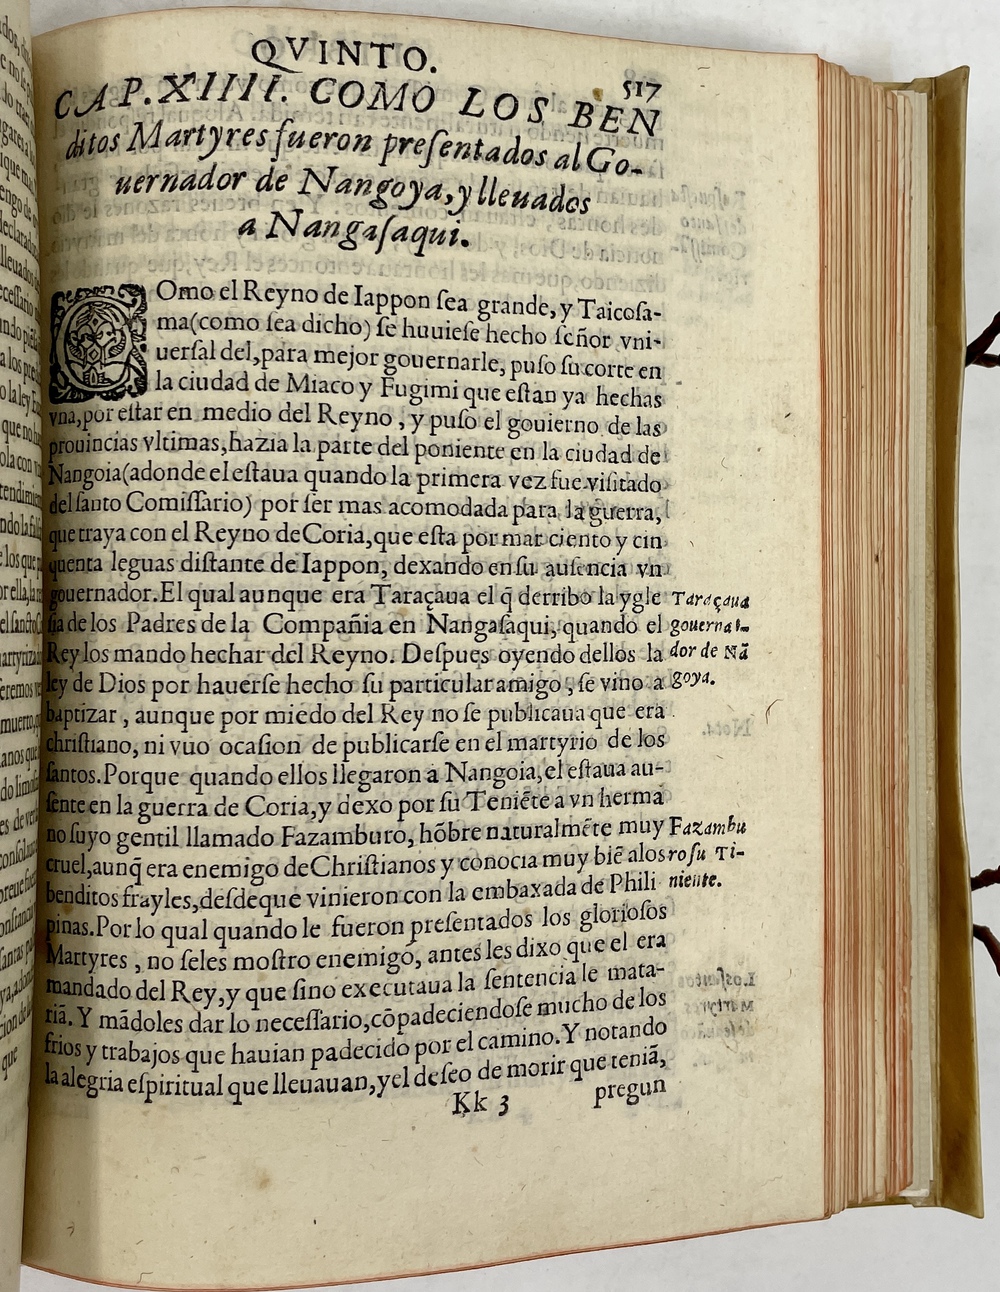 QVINTO.
517
CAP. XIIII. COMO LOS BEN
ditos Martyres fueron preſentados al Go-
uernador de Nangoya, y lleuados
a Nangaſaqui.
COmo el Reyno de Iappon ſea grande, y Taicoſa-
ma(como ſea dicho) ſe huuieſe hecho ſeñor vni-
uerſal del, para mejor gouernarle, puſo ſu corte en
la ciudad de Miaco y Fugimi que eſtan ya hechas
vna, por eſtar en medio del Reyno, y puſo el gouierno de las
prouincias vltimas, hazia la parte del poniente en la ciudad de
Nangoia(adonde el eſtaua quando la primera vez fue viſitado
del ſanto Comiſſario) por ſer mas acomodada para la guerra,
que traya con el Reyno de Coria, que eſta por mar ciento y cin
quenta leguas diſtante de Iappon, dexando en ſu auſencia vn
gouernador. El qual aunque era Taraçaua el q̃ derribo la ygle
ſia de los Padres de la Compañia en Nangaſaqui, quando el
Rey los mando hechar del Reyno. Deſpues oyendo dellos la
ley de Dios por hauerſe hecho ſu particular amigo, ſe vino a
baptizar, aunque por miedo del Rey no ſe publicaua que era
chriſtiano, ni vuo ocaſion de publicarſe en el martyrio de los
ſantos. Porque quando ellos llegaron a Nangoia, el eſtaua au-
ſente en la guerra de Coria, y dexo por ſu Teniẽte a vn hermã
no ſuyo gentil llamado Fazamburo, hõbre naturalmẽte muy
cruel, aunq̃ era enemigo de Chriſtianos y conocia muy biẽ a los
benditos frayles, deſde que vinieron con la embaxada de Phili
pinas. Por lo qual quando le fueron preſentados los glorioſos
Martyres, no ſeles moſtro enemigo, antes les dixo que el era
mandado del Rey, y que ſino executaua la ſentencia le mata-
riã. Y mãdoles dar lo neceſſario, cõpadeciendoſe mucho de los
frios y trabajos que hauian padecido por el camino. Y notando
la alegria eſpiritual que lleuauan, y el deſeo de morir que teniã,
Kk 3
pregun
Taraçaua
gouerna-
dor de Nã
goya.
Fazambu
ro ſu Ti-
niente.